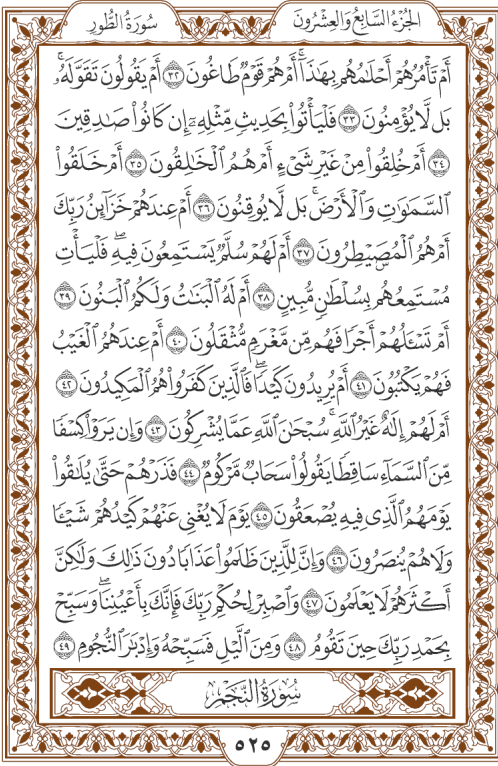 الجزء السابع والعشرون
سورة الطور
أَمْ تَأْمُرُهُمْ أَحْلَٰمُهُم بِهَٰذَآ ۚ أَمْ هُمْ قَوْمٌ طَاغُونَ ٣٢ أَمْ يَقُولُونَ تَقَوَّلَهُۥ ۚ
بَل لَّا يُؤْمِنُونَ ٣٣ فَلْيَأْتُوا۟ بِحَدِيثٍ مِّثْلِهِۦٓ إِن كَانُوا۟ صَٰدِقِينَ
٣٤ أَمْ خُلِقُوا۟ مِنْ غَيْرِ شَىْءٍ أَمْ هُمُ ٱلْخَٰلِقُونَ ٣٥ أَمْ خَلَقُوا۟
ٱلسَّمَٰوَٰتِ وَٱلْأَرْضَ ۚ بَل لَّا يُوقِنُونَ ٣٦ أَمْ عِندَهُمْ خَزَآئِنُ رَبِّكَ
أَمْ هُمُ ٱلْمُصَۜيْطِرُونَ ٣٧ أَمْ لَهُمْ سُلَّمٌ يَسْتَمِعُونَ فِيهِ ۖ فَلْيَأْتِ
مُسْتَمِعُهُم بِسُلْطَٰنٍ مُّبِينٍ ٣٨ أَمْ لَهُ ٱلْبَنَٰتُ وَلَكُمُ ٱلْبَنُونَ ٣٩
أَمْ تَسْـَٔلُهُمْ أَجْرًا فَهُم مِّن مَّغْرَمٍ مُّثْقَلُونَ ٤٠ أَمْ عِندَهُمُ ٱلْغَيْبُ
فَهُمْ يَكْتُبُونَ ٤١ أَمْ يُرِيدُونَ كَيْدًا ۖ فَٱلَّذِينَ كَفَرُوا۟ هُمُ ٱلْمَكِيدُونَ ٤٢
أَمْ لَهُمْ إِلَٰهٌ غَيْرُ ٱللَّهِ ۚ سُبْحَٰنَ ٱللَّهِ عَمَّا يُشْرِكُونَ ٤٣ وَإِن يَرَوْا۟ كِسْفًا
مِّنَ ٱلسَّمَآءِ سَاقِطًا يَقُولُوا۟ سَحَابٌ مَّرْكُومٌ ٤٤ فَذَرْهُمْ حَتَّىٰ يُلَٰقُوا۟
يَوْمَهُمُ ٱلَّذِى فِيهِ يُصْعَقُونَ ٤٥ يَوْمَ لَا يُغْنِى عَنْهُمْ كَيْدُهُمْ شَيْـًٔا
وَلَا هُمْ يُنصَرُونَ ٤٦ وَإِنَّ لِلَّذِينَ ظَلَمُوا۟ عَذَابًا دُونَ ذَٰلِكَ وَلَٰكِنَّ
أَكْثَرَهُمْ لَا يَعْلَمُونَ ٤٧ وَٱصْبِرْ لِحُكْمِ رَبِّكَ فَإِنَّكَ بِأَعْيُنِنَا ۖ وَسَبِّحْ
بِحَمْدِ رَبِّكَ حِينَ تَقُومُ ٤٨ وَمِنَ ٱلَّيْلِ فَسَبِّحْهُ وَإِدْبَٰرَ ٱلنُّجُومِ ٤٩
سُورَةُ النَّجْمِ
٥٢٥